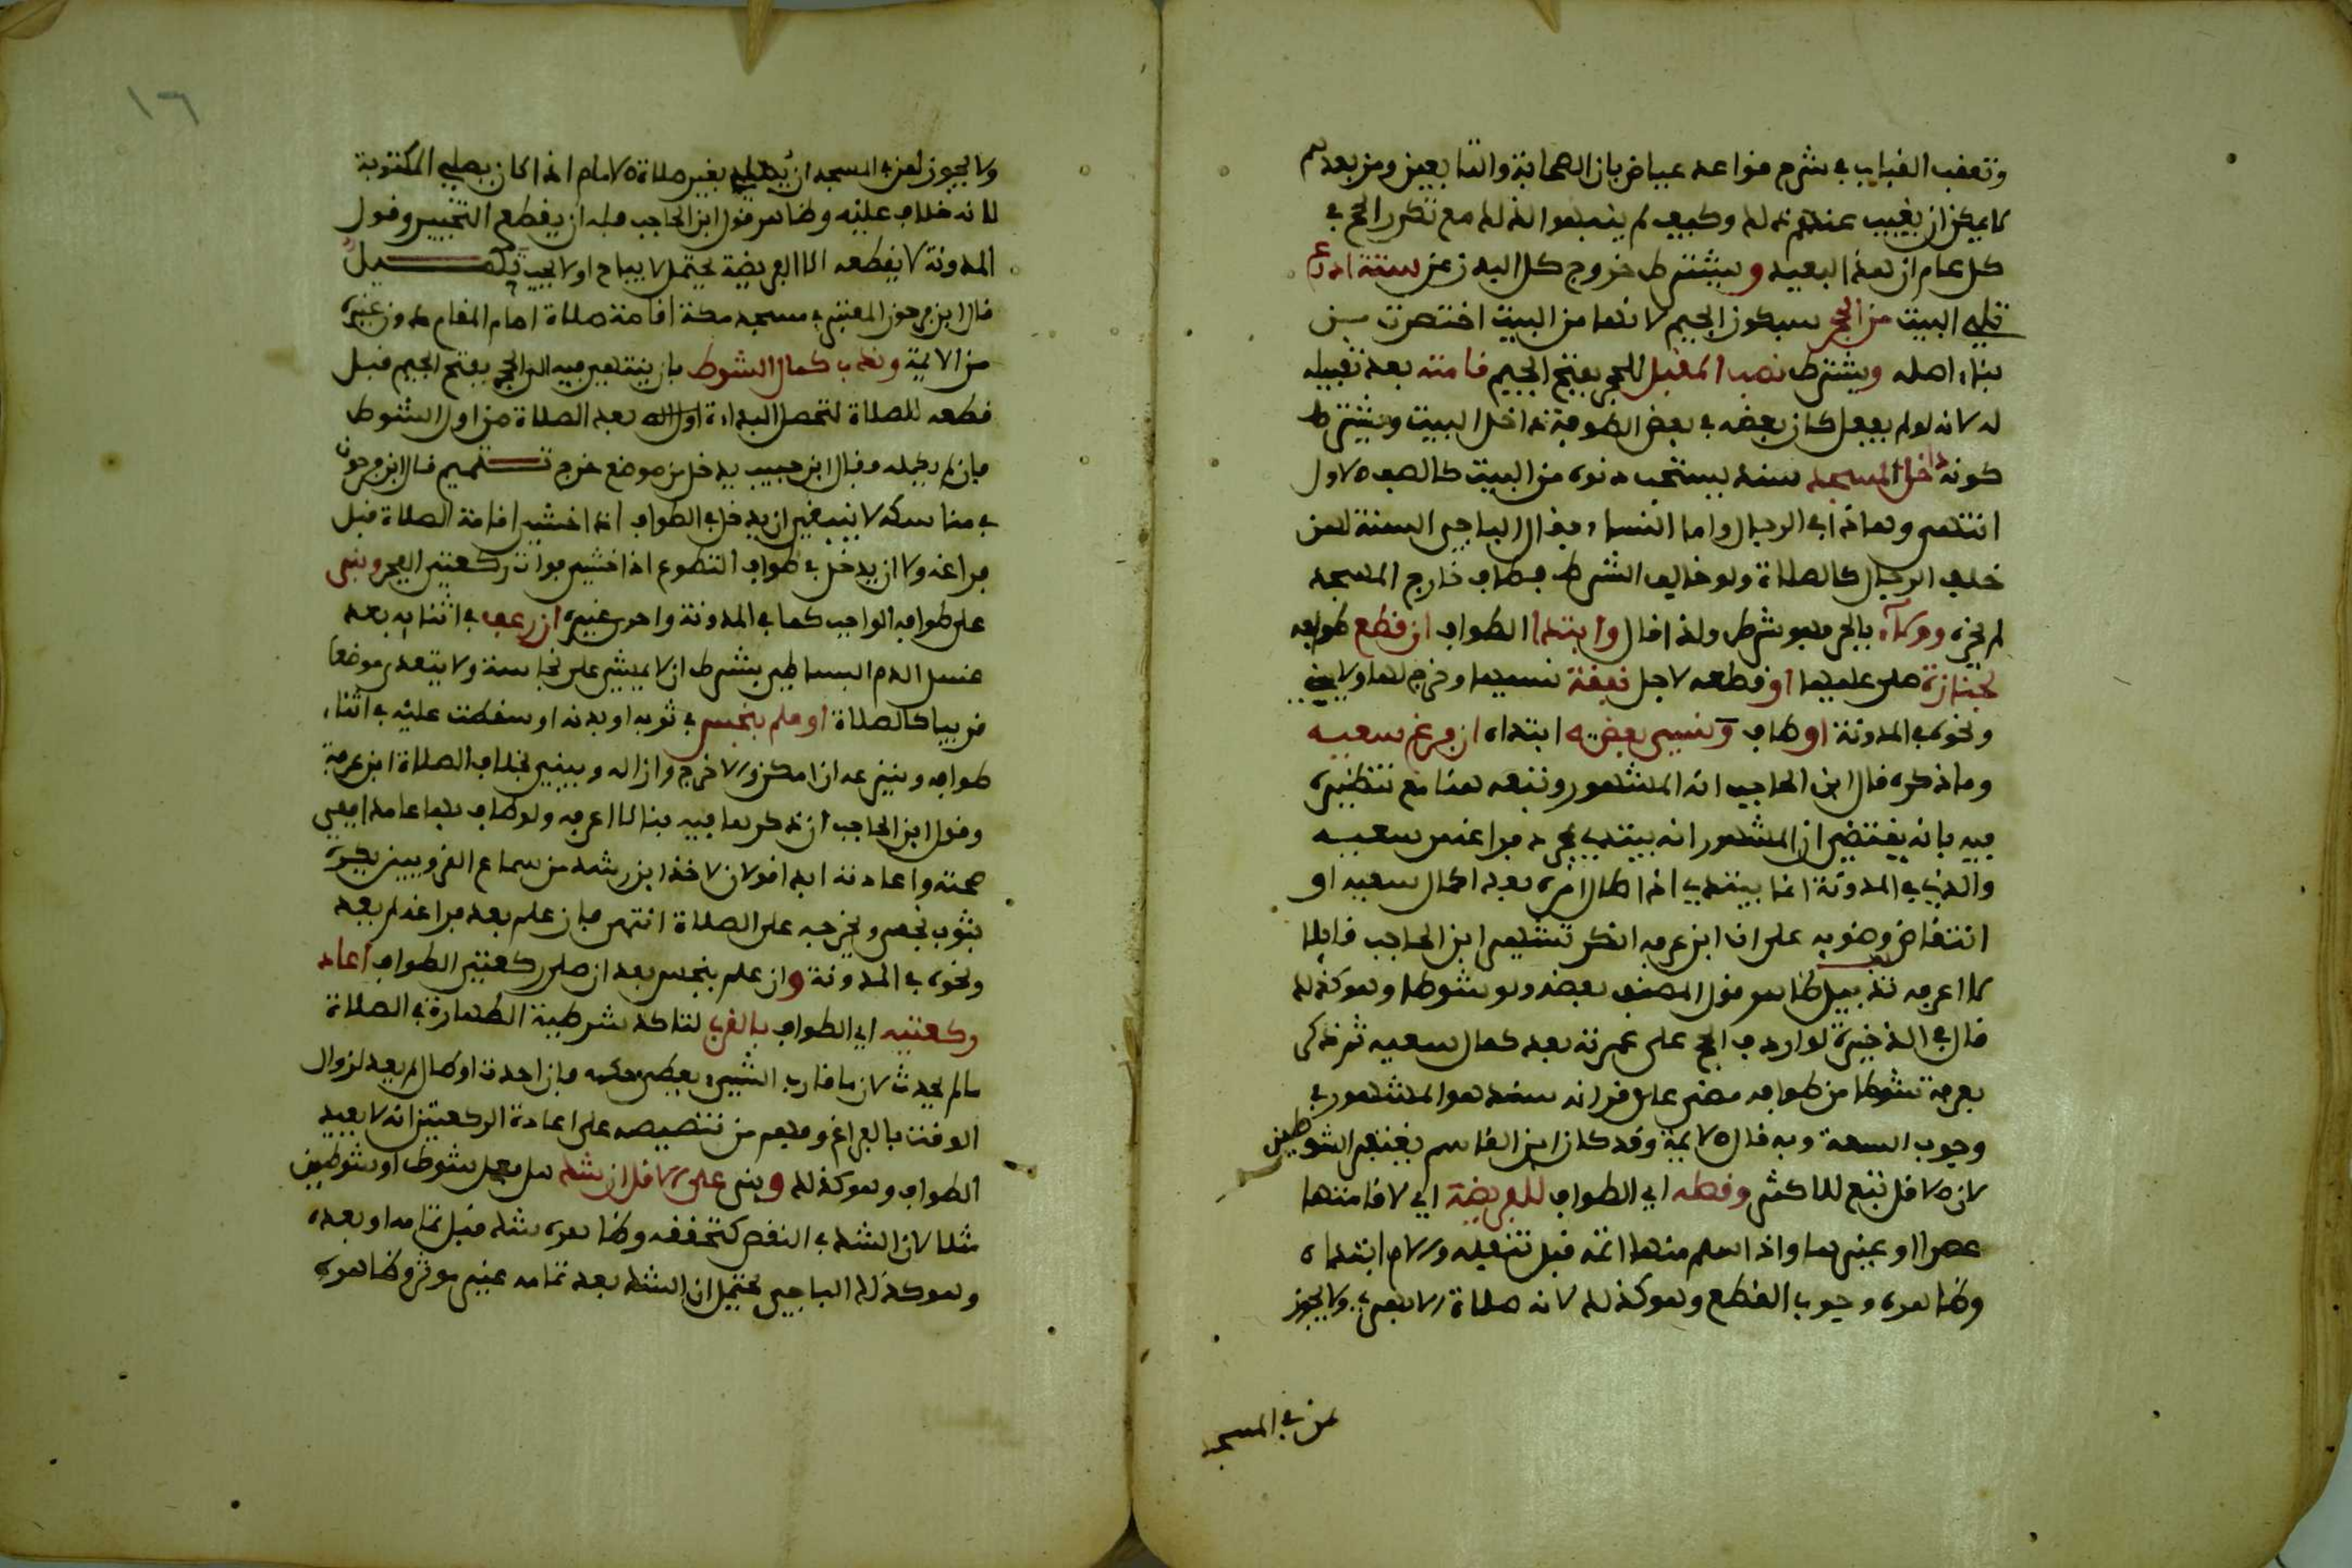 وتعقب القباب في شرح قواعد عياض بان الصحابة والتابعين ومن بعدهم
لا يمكن ان يغيب عنهم ذلك وكيف لم ينبهوا لذلك مع تكرر الحج في
كل عام ان هذا لبعيد ويشترط خروج كل البدن عن ستة اذرع
تلي البيت من الحجر بسكون الجيم لانها من البيت اختصرت من
بناء اصله ويشترط نصب المقبل للحجر بفتح الجيم قامته بعد تقبيله
له لانه لو لم يفعل كان بعضه في بعض الطوفة داخل البيت ويشترط
كونه داخل المسجد سند يستحب دنوه من البيت كالصف الاول
انتهى وهذا في الرجال واما النساء فقال الباجي السنة لهن
خلف الرجال كالصلاة ولو خالف الشرط فطاف خارج المسجد
لم يجزه ووراه بالحجر فهو شرط ولذا قال وابتدأ الطواف ان قطع طوافه
لجنازة صلى عليها او قطعه لاجل نفقة نسيها وخرج لها ولا يبني
ونحوه في المدونة او طاف ونسي بعضه ابتداه ان فرغ سعيه
وما ذكره قال ابن الحاجب انه المشهور وتبعه هنا مع تنظيره
فيه بانه يقتضي ان المشهور انه يبتدي بمجرد فراغه من سعيه
والذي في المدونة انما يبتدي اذا طال امره بعد اكمال سعيه او
انتقاض وضويه على ان ابن عرفة انكر تشهير ابن الحاجب قايلا
لا اعرفه تذييل ظاهر قول المصنف بعضه ولو شوطا وهو كذلك
قال في الذخيرة لو اردف الحج على عمرته بعد كمال سعيه ثم ذكر
بعرفة شوطا من طوافه مضى على قرانه سند هو المشهور في
وجوب السبعة وبه قال الايمة وقد كان ابن القاسم يخفف الشوطين
لان الاقل تبع للاكثر وقطعه اي الطواف للفريضة اي لاقامتها
عصرا او غيرها واذا سلم منها اتمه قبل تنفله والام ابتداه
وظاهره وجوب القطع وهو كذلك لانه صلاة الا بعرف ولا يجوز
لمن في المسجد
١٦
ولا يجوز لمن في المسجد ان يصلي بغير صلاة الامام اذا كان يصلي المكتوبة
لانه خلاف عليه وظاهر قول ابن الحاجب فله ان يقطع التخيير وقول
المدونة لا يقطعه الا الفريضة يحتمل لا يباح او لا يجب تكميل
قال ابن فرحون المعتبر في مسجد مكة اقامة صلاة امام المقام دون غيره
من الايمة وندب كمال الشوط بان ينتهي فيه الى الحجر بفتح الجيم قبل
قطعه للصلاة لتحصل البداءة اوله بعد الصلاة من اول الشوط
فان لم يكمله فقال ابن حبيب يدخل من موضع خرج تتميم قال ابن فرحون
في مناسكه لا ينبغي ان يدخل في الطواف اذا خشي اقامة الصلاة قبل
فراغه ولا ان يدخل في طواف التطوع اذا خشي فوات ركعتي الفجر وبنى
على طوافه الواجب كما في المدونة واحرى غيره ان رعف في اثنايه بعد
غسل الدم البساطي بشرط ان لا يمشي على نجاسة ولا يتعدى موضعا
قريبا كالصلاة او علم بنجس في ثوبه او بدنه او سقطت عليه في اثناء
طوافه وينزعه ان امكن والا خرج وازاله ويبني بخلاف الصلاة ابن عرفة
وقول ابن الحاجب ان ذكر بها فيه بنا لا اعرفه ولو طاف بها عامدا ففي
صحته واعادته ابدا قولان لاخذ ابن رشد من سماع القرويين يكره
بثوب نجس وتخرجه على الصلاة انتهى فان علم بعد فراغه لم يعد
ونحوه في المدونة وان علم بنجس بعد ان صلى ركعتي الطواف اعاد
ركعتيه اي الطواف بالقرب لتاكد شرطية الطهارة في الصلاة
ما لم يحدث لان ما قارب الشيء يعطى حكمه فان احدث او طال لم يعد لزوال
الوقت بالفراغ وفهم من تنصيصه على اعادة الركعتين انه لا يعيد
الطواف وهو كذلك وبنى على الاقل ان شك هل فعل شوطا او شوطين
مثلا لان الشك في النقص كتحققه وظاهره شك قبل تمامه او بعده
وهو كذلك الباجي يحتمل ان الشك بعد تمامه غير موثر وظاهره